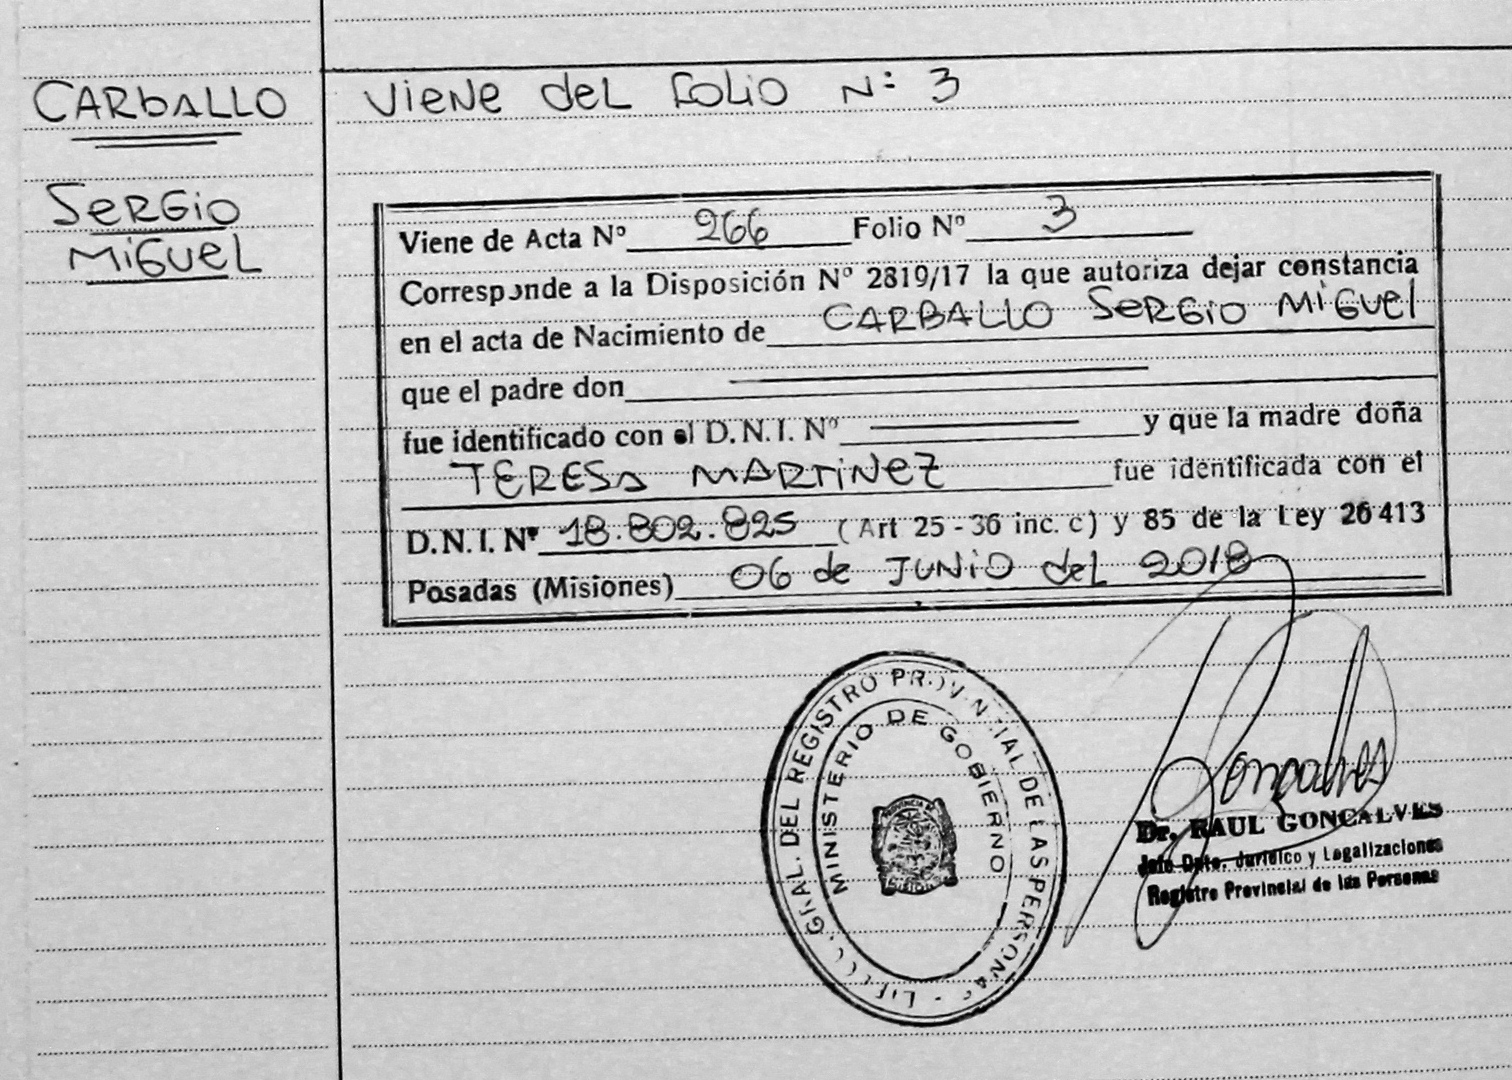 CARBALLO
SERGIO
MIGUEL
VIENE DEL FOLIO N: 3
Viene de Acta Nº 266 Folio Nº 3
Corresponde a la Disposición Nº 2819/17 la que autoriza dejar constancia
en el acta de Nacimiento de CARBALLO SERGIO MIGUEL
que el padre don
fue identificado con el D.N.I. Nº y que la madre doña
TERESA MARTINEZ fue identificada con el
D.N.I. Nº 18.802.825 (Art 25 - 36 inc. c) y 85 de la Ley 26413
Posadas (Misiones) 06 de JUNIO del 2018
GRAL. DEL REGISTRO PROVINCIAL DE LAS PERSONAS
MINISTERIO DE GOBIERNO
Gonçalves
Dr. RAUL GONCALVES
Jefe Dpto. Jurídico y Legalizaciones
Registro Provincial de las Personas